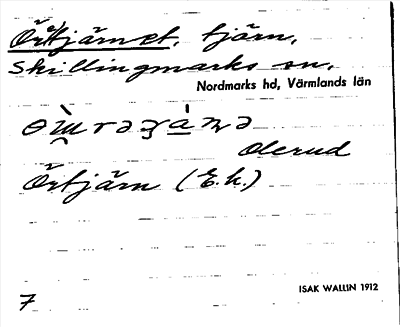 Örtjärnet, tjärn,
Skillingmarks sn,
Nordmarks hd, Värmlands län
Olerud
Örtjärn (E.k.)
ISAK WALLIN 1912
7